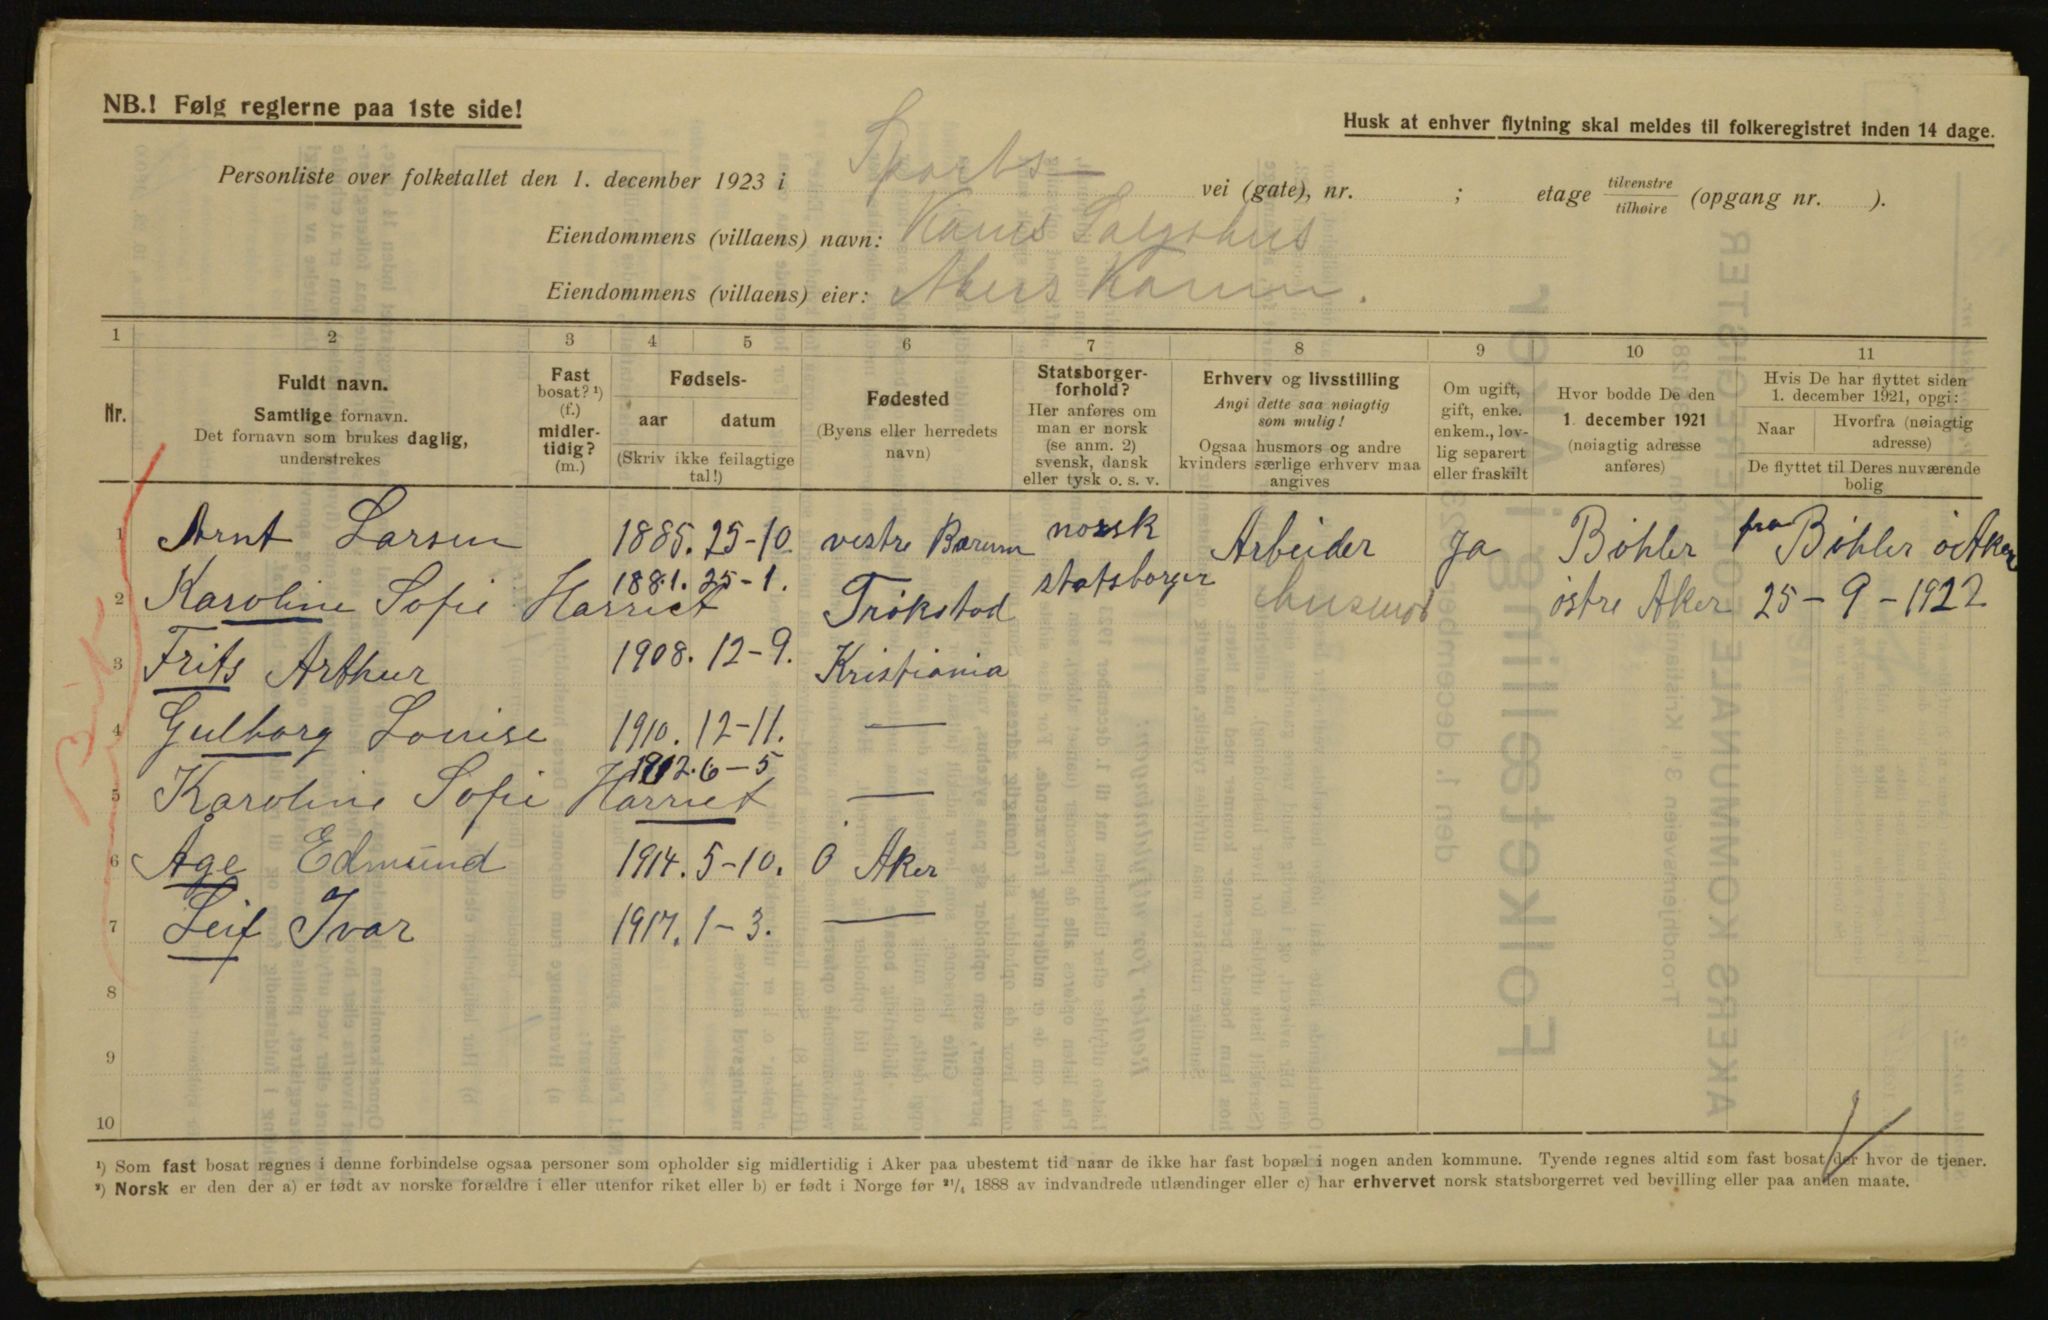 NB.! Følg reglerne paa 1ste side!
Husk at enhver flytning skal meldes til folkeregistret inden 14 dage.
Personliste over folketallet den 1. december 1923 i Sports- vei (gate), nr. ; etage tilvenstre tilhøire (opgang nr. ).
Eiendommens (villaens) navn:
Eiendommens (villaens) eier: Akers Komm.
1 2 3 4 5 6 7 8 9 10 11
Nr.
Fuldt navn.
Samtlige fornavn.
Det fornavn som brukes daglig,
understrekes
Fast
bosat? ¹)
(f.)
midler-
tidig?
(m.)
Fødsels-
aar datum
(Skriv ikke feilagtige
tal!)
Fødested
(Byens eller herredets
navn)
Statsborger-
forhold?
Her anføres om
man er norsk
(se anm. 2)
svensk, dansk
eller tysk o. s. v.
Erhverv og livsstilling
Angi dette saa nøiagtig
som mulig!
Ogsaa husmors og andre
kvinders særlige erhverv maa
angives
Om ugift,
gift, enke.
enkem., lov-
lig separert
eller fraskilt
Hvor bodde De den
1. december 1921
(nøiagtig adresse
anføres)
Hvis De har flyttet siden
1. december 1921, opgi:
Naar Hvorfra (nøiagtig
adresse)
De flyttet til Deres nuværende
bolig
1 Arnt Larsen 1885. 25-10 vestre Bærum norsk Arbeider ja Bøhler fra Bøhler ø Aker
2 Karoline Sofie Harriet 1881. 25-1. Trøkstad statsborger husmor østre Aker 25-9-1922
3 Frits Arthur 1908. 12-9. Kristiania
4 Gulborg Louise 1910. 12-11. —
5 Karoline Sofie Harriet 1912. 6-5 —
6 Åge Edmund 1914. 5-10. Ø Aker
7 Leif Ivar 1917. 1-3. —
8
9
10
¹) Som fast bosat regnes i denne forbindelse ogsaa personer som opholder sig midlertidig i Aker paa ubestemt tid naar de ikke har fast bopæl i nogen anden kommune. Tyende regnes altid som fast bosat der hvor de tjener.
²) Norsk er den der a) er født av norske forældre i eller utenfor riket eller b) er født i Norge før ²¹/₄ 1888 av indvandrede utlændinger eller c) har erhvervet norsk statsborgerret ved bevilling eller paa anden maate.